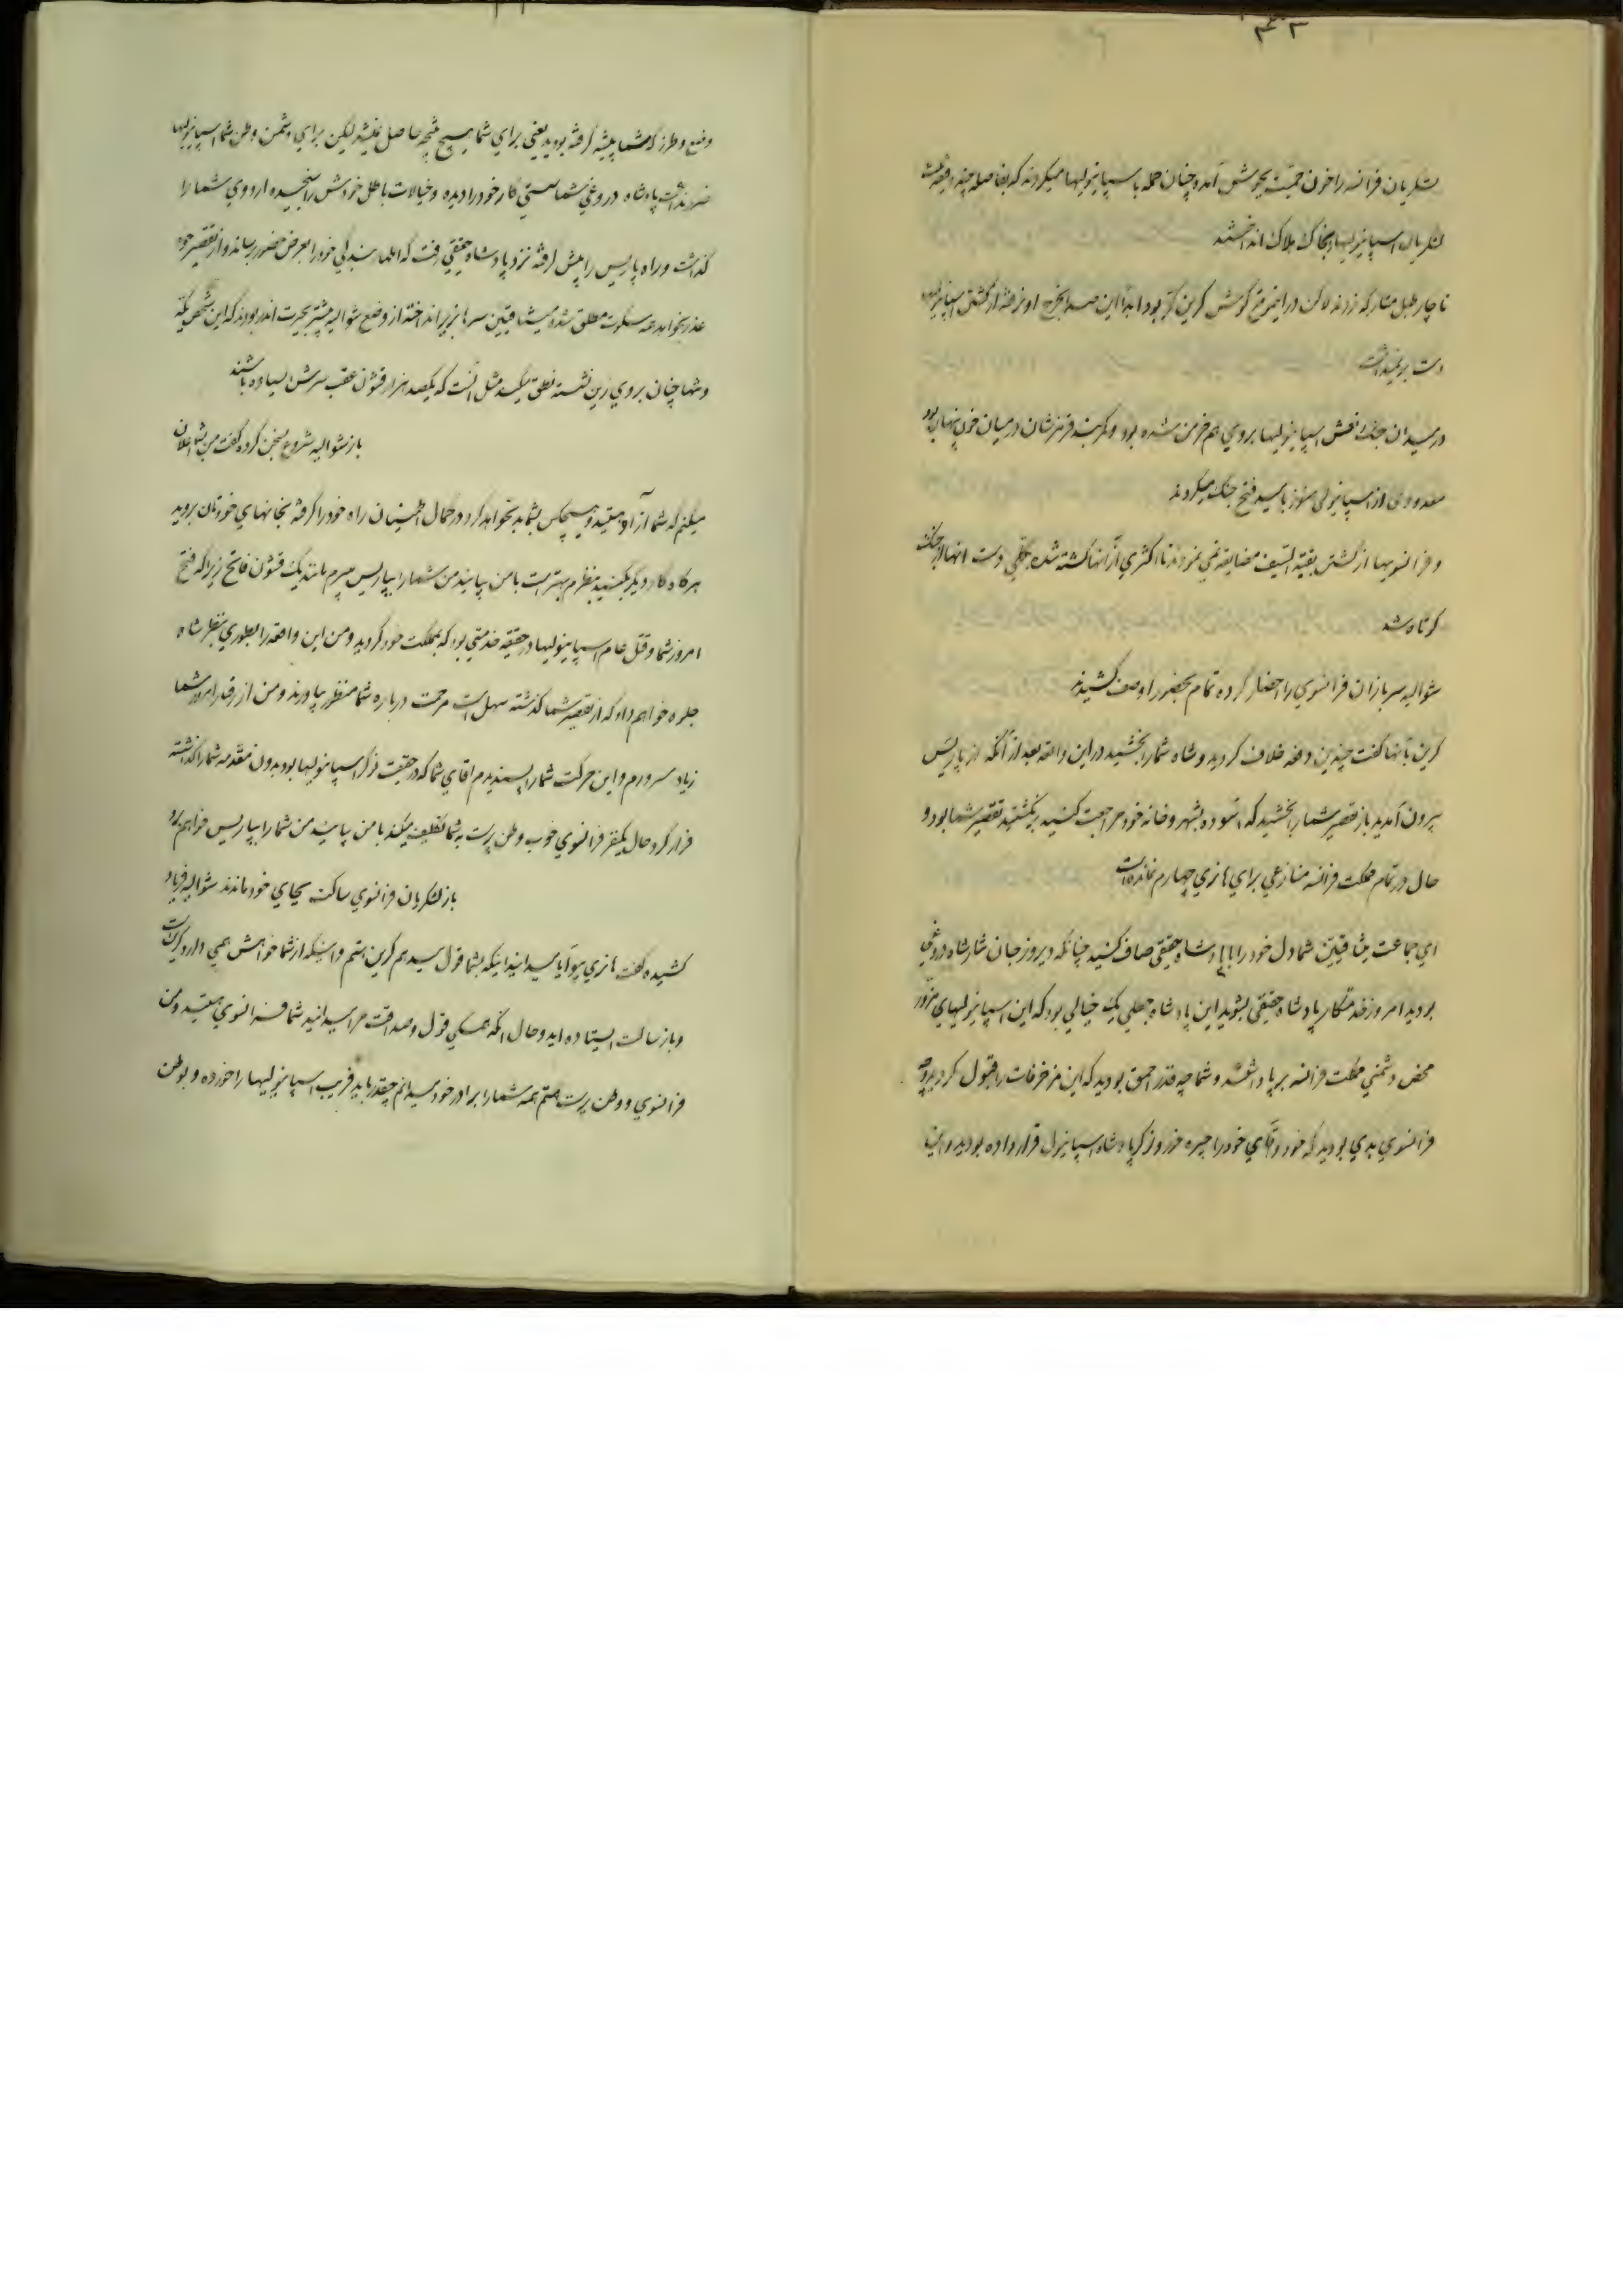 لشکریان فرانسه را خون حمیت بجوش آمد و چنان حمله با سپانیولیها میکردند که بفاصله چند دقیقه شصت
لشکریان اسپانیولیها را بخاک هلاک انداختند
ناچار طبل متارکه زدند لاکن در این موقع گوش کرین کر بود ابدا این صدا بخرج او نرفته از کشتن اسپانیولیها
دست بر نمیداشت
در میدان جنگ نعش اسپانیولیها بروی هم خرمن شده بود و کمربند قرمزشان در میان خون پنهان بود
معدودی از اسپانیولی هنوز بامید فتح جنگ میکردند
و فرانسویها از کشتن بقیة السیف مضایقه نمی نمودند تا اکثری از آنها کشته شده بکلی دست آنها از جنگ
کوتاه شد
شوالیه سربازان فرانسوی را احضار کرده تمام بحضور او صف کشیدند
کرین بآنها گفت چندین دفعه خلاف کردید و شاه شما را بخشید در این واقعه بعد از آنکه از پاریس
بیرون آمدید باز تقصیر شما را بخشید که آسوده بشهر و خانه خود مراجعت کنید برنگشتید تقصیر شما بود و
حال در تمام مملکت فرانسه منازعی برای هانری چهارم نمانده است
ای جماعت میثاقیین شما دل خود را با پادشاه حقیقی صاف کنید چنانکه دیروز جان نثار شاه دروغی
بودید امروز خدمتکار پادشاه حقیقی بشوید این پادشاه جعلی یک خیالی بود که این اسپانیولیهای مزور
محض دشمنی مملکت فرانسه برپا داشتند و شما چه قدر احمق بودید که این مزخرفات را قبول کردید و چه
فرانسوی بدی بودید که خود و آقای خود را جیره خور و نوکر پادشاه اسپانیول قرار داده بودید و این
وضع و طرز که شما پیشه گرفته بودید یعنی برای شما هیچ نتیجه حاصل نمیشد لیکن برای دشمن وطن شما اسپانیولیها
ضرر نداشت پادشاه دروغی شما سستی کار خود را دیده و خیالات باطل خودش را سنجیده اردوی شما را
گذاشت و راه پاریس را پیش گرفته نزد پادشاه حقیقی رفت که اظهار بندگی خود را بعرض حضور رساند و از تقصیر خود
عذر بخواهد همه سکوت مطلق شده میثاقیین سرها بزیر انداخته از وضع شوالیه بیشتر بحیرت اندر بودند که این شخص یکه
و تنها چنان بروی زین نشسته نطق میکند مثل آنست که یکصد هزار قشون عقب سرش ایستاده باشند
باز شوالیه شروع بسخن کرده گفت من بشما اعلان
میکنم که شما آزاد هستید و هیچکس بشما بد نخواهد کرد در کمال اطمینان راه خود را گرفته بخانهای خودتان بروید
هرگاه کار دیگر بکنید بنظرم بهتر است با من بیایند من شما را بپاریس میبرم مانند یک قشون فاتح زیرا که فتح
امروز شما و قتل عام اسپانیولیها در حقیقه خدمتی بود که بمملکت خود کردید و من این واقعه را بطوری بنظر شاه
جلوه خواهم داد که از تقصیر شما گذشته سهل است مرحمت درباره شما منظور بیاورند و من از رفتار امروز شما
زیاد مسرورم و این حرکت شما را پسندیدم آقای شما که در حقیقت نوکر اسپانیولیها بود بدون مقدمه شما را گذاشته
فرار کرد حال یکنفر فرانسوی خوب وطن پرست بشما تکلیف میکند با من بیائید من شما را بپاریس خواهم برد
باز لشکریان فرانسوی ساکت بجای خود ماندند شوالیه فریاد
کشیده گفت هانری پیو آیا میدانید اینکه بشما قول میدهم کرین هستم و اینکه از شما خواهش همی دارد کرین است
و باز ساکت ایستاده اید و حال آنکه همگی قول و صداقت مرا میدانید شما فرانسوی هستید و من
فرانسوی و وطن پرست هستم همه شما را برادر خود میدانم چقدر باید فریب اسپانیولیها را خورده و بوطن